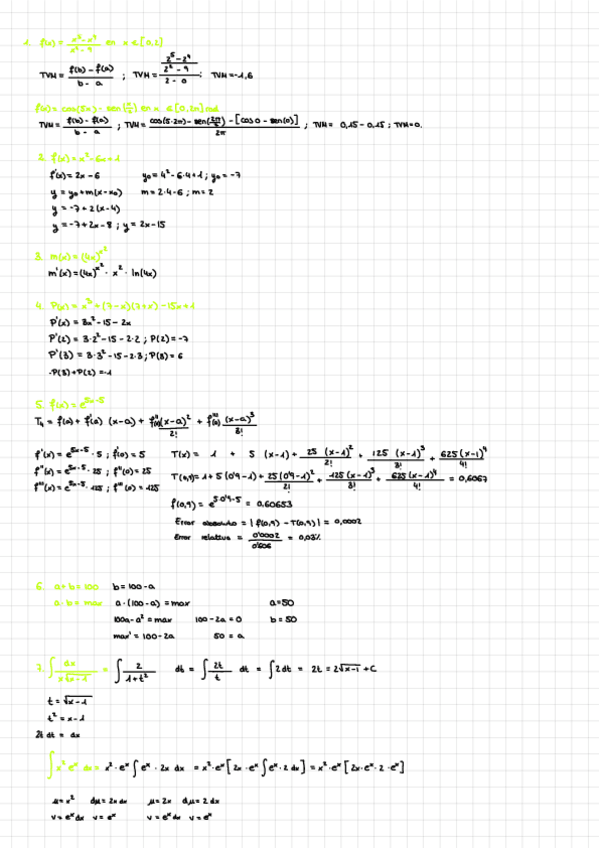 1. f(x) = x³-x⁴ / x²-9 en x ∈ [0,2]
TVM = f(b) - f(a) / b - a ; TVM = 2⁵-2⁴ / 2²-9 / 2-0 ; TVM = -1,6
f(x) = cos(5x) - sen(x/2) en x ∈ [0,2π] rad
TVM = f(b) - f(a) / b - a ; TVM = cos(5·2π) - sen(2π/2) - [cos 0 - sen(0)] / 2π ; TVM = 0,15 - 0,15 ; TVM = 0.
2. f(x) = x² - 6x + 1
f'(x) = 2x - 6 y₀ = 4² - 6·4 + 1 ; y₀ = -7
y = y₀ + m(x - x₀) m = 2·4 - 6 ; m = 2
y = -7 + 2(x - 4)
y = -7 + 2x - 8 ; y = 2x - 15
3. m(x) = (4x)^x²
m'(x) = (4x)^x² · x² · ln(4x)
4. P(x) = x³ + (7-x)(7+x) - 15x + 1
P'(x) = 3x² - 15 - 2x
P'(2) = 3·2² - 15 - 2·2 ; P(2) = -7
P'(3) = 3·3² - 15 - 2·3 ; P(3) = 6
·P(3) + P(2) = -1
5. f(x) = e^5x-5
T₄ = f(a) + f'(a) (x-a) + f''(x)(x-a)² / 2! + f'''(x) (x-a)³ / 3!
f'(x) = e^5x-5 · 5 ; f'(0) = 5 T(x) = 1 + 5 (x-1) + 25 (x-1)² / 2! + 125 (x-1)³ / 3! + 625 (x-1)⁴ / 4!
f''(x) = e^5x-5 · 25 ; f''(0) = 25
f'''(x) = e^5x-5 · 125 ; f'''(0) = 125 T(0,9) = 1 + 5 (0'9-1) + 25 (0'9-1)² / 2! + 125 (x-1)³ / 3! + 625 (x-1)⁴ / 4! = 0,6067
f(0,9) = e^5·0'9-5 = 0,60653
Error absoluto = | f(0,9) - T(0,9) | = 0,0002
Error relativo = 0'0002 / 0'606 = 0,03%
6. a + b = 100 b = 100 - a
a · b = max a · (100 - a) = max a = 50
100a - a² = max 100 - 2a = 0 b = 50
max' = 100 - 2a 50 = a
7. ∫ dx / x√x-1 = ∫ 2 / 1+t² dt = ∫ 2t / t dt = ∫ 2 dt = 2t = 2√x-1 + C
t = √x-1
t² = x - 1
2t dt = dx
∫ x² eˣ dx = x² · eˣ ∫ eˣ · 2x dx = x² · eˣ [ 2x · eˣ ∫ eˣ · 2 dx ] = x² · eˣ [ 2x · eˣ · 2 · eˣ ]
u = x² du = 2x dx u = 2x du = 2 dx
v = eˣ dx v = eˣ v = eˣ dx v = eˣ